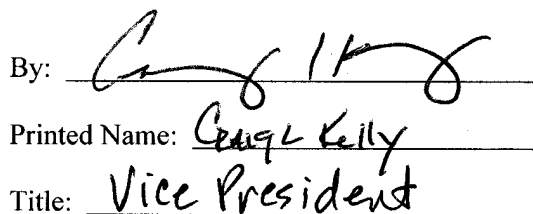 By:
Printed Name: Craig L Kelly
Title: Vice President